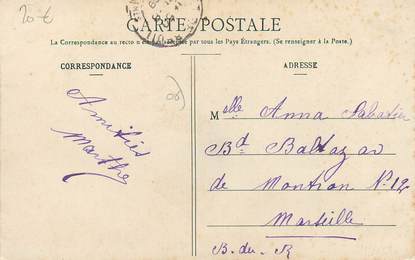 20 €
CARTE POSTALE
La Correspondance au recto n'est pas acceptée par tous les Pays Étrangers. (Se renseigner à la Poste.)
CORRESPONDANCE
ADRESSE
Amitiés
Marthe
Mselle Anna Sabatier
Bd Baltazar
de Montron N. 12
Marseille
B. du. R